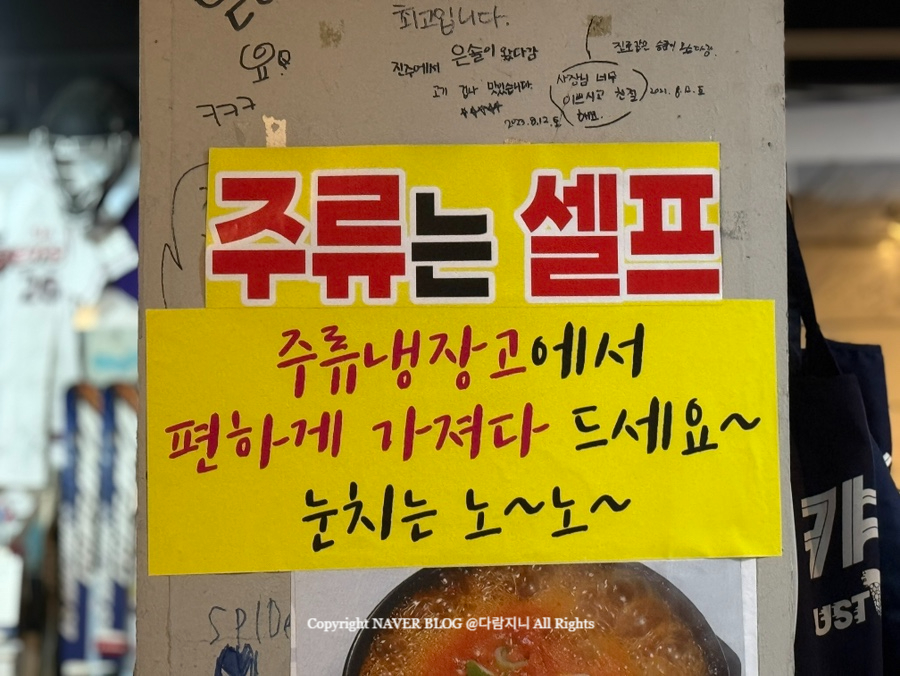 최고입니다.
요
은솔이 왔다감
진주에서
고기 겁나 맛있습니다.
사장님 너무
이쁘시고 친절
해요.
2021.8.12.토
2023.8.12.토
ㅋㅋㅋ
주류는 셀프
주류냉장고에서
편하게 가져다 드세요~
눈치는 노~노~
SPIDe
Copyright NAVER BLOG @다람지니 All Rights
캬
UST
26